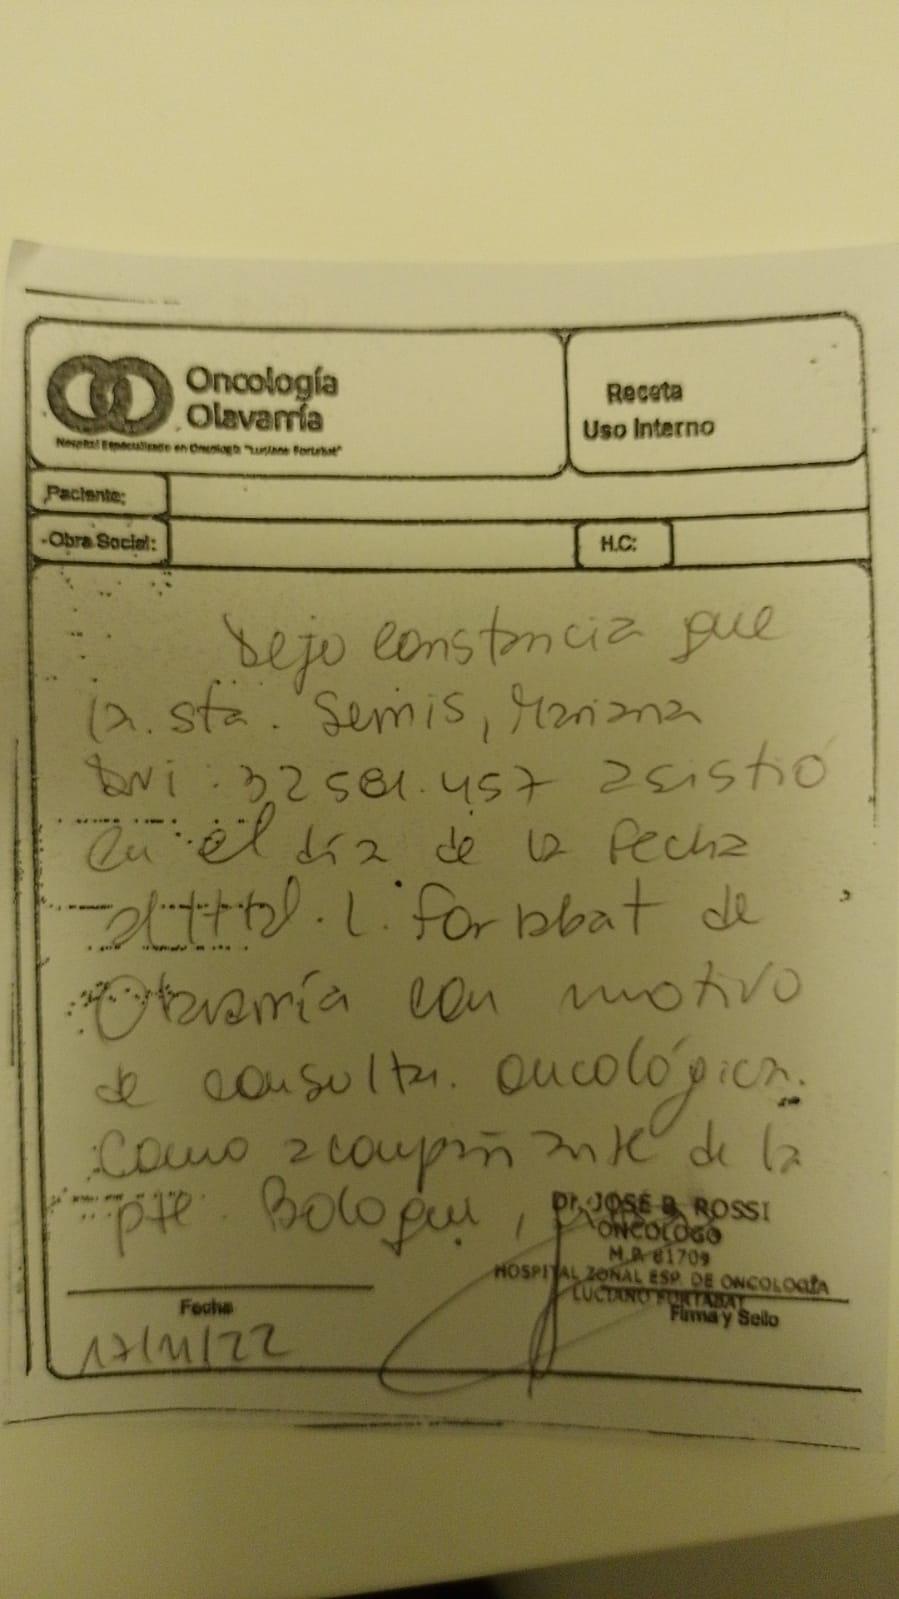 Oncología
Olavarría
Hospital Especializado en Oncología "Luciano Fortabat"
Receta
Uso Interno
Paciente:
Obra Social:
H.C:
Dejo constancia que
la sta. Semis, Mariana
DNI: 32581.457 asistió
en el día de la fecha
al Htal. L. Fortabat de
Olavarría con motivo
de consulta oncológica
como acompañante de la
pte.
Dr. JOSE B. ROSSI
ONCOLOGO
M.P. 81709
HOSPITAL ZONAL ESP. DE ONCOLOGÍA
LUCIANO FORTABAT
Fecha
Firma y Sello
17/11/22